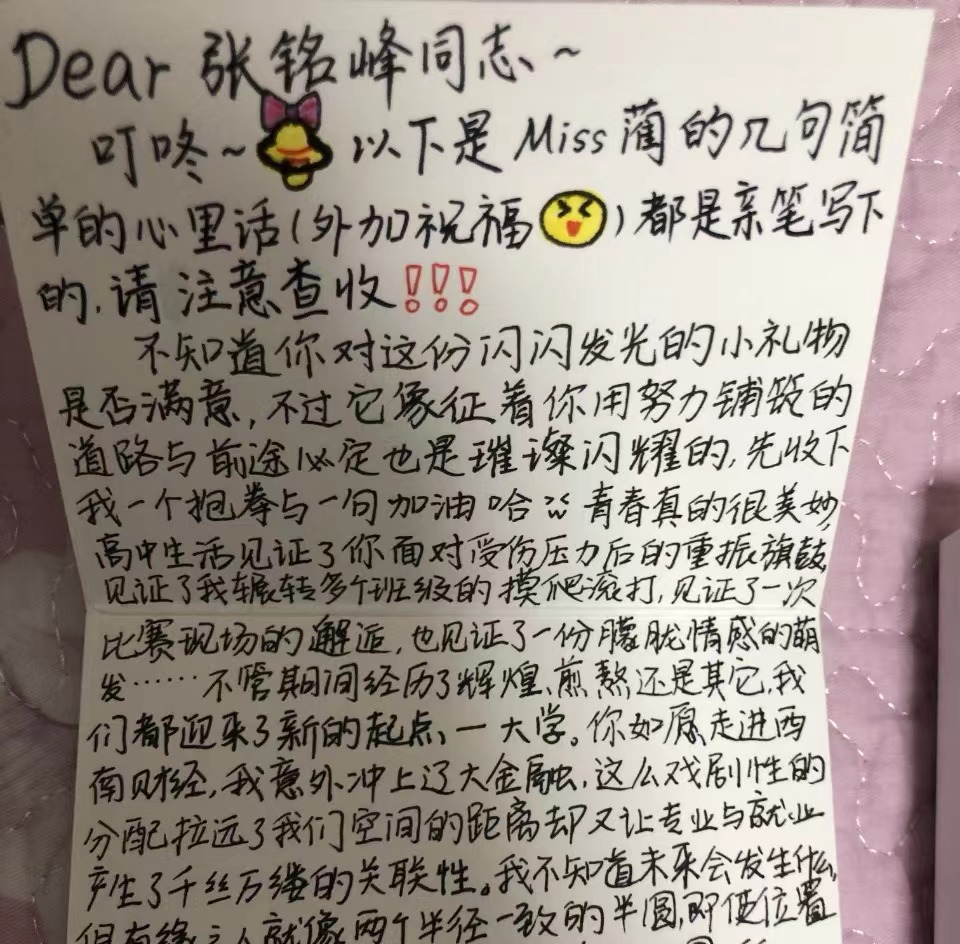 Dear 张铭峰同志~
叮咚~ 以下是Miss蔺的几句简
单的心里话(外加祝福)都是亲笔写下
的,请注意查收!!!
不知道你对这份闪闪发光的小礼物
是否满意,不过它象征着你用努力铺筑的
道路与前途必定也是璀璨闪耀的,先收下
我一个抱拳与一句加油哈 青春真的很美妙,
高中生活见证了你面对受伤压力后的重振旗鼓,
见证了我辗转多个班级的摸爬滚打,见证了一次
比赛现场的邂逅,也见证了一份朦胧情感的萌
发……不管期间经历了辉煌、煎熬还是其它,我
们都迎来了新的起点、一大学。你如愿走进西
南财经,我意外冲上辽大金融,这么戏剧性的
分配拉远了我们空间的距离却又让专业与就业
产生了千丝万缕的关联性。我不知道未来会发生什么,
但有缘之人就像两个半径一致的半圆,即使位置